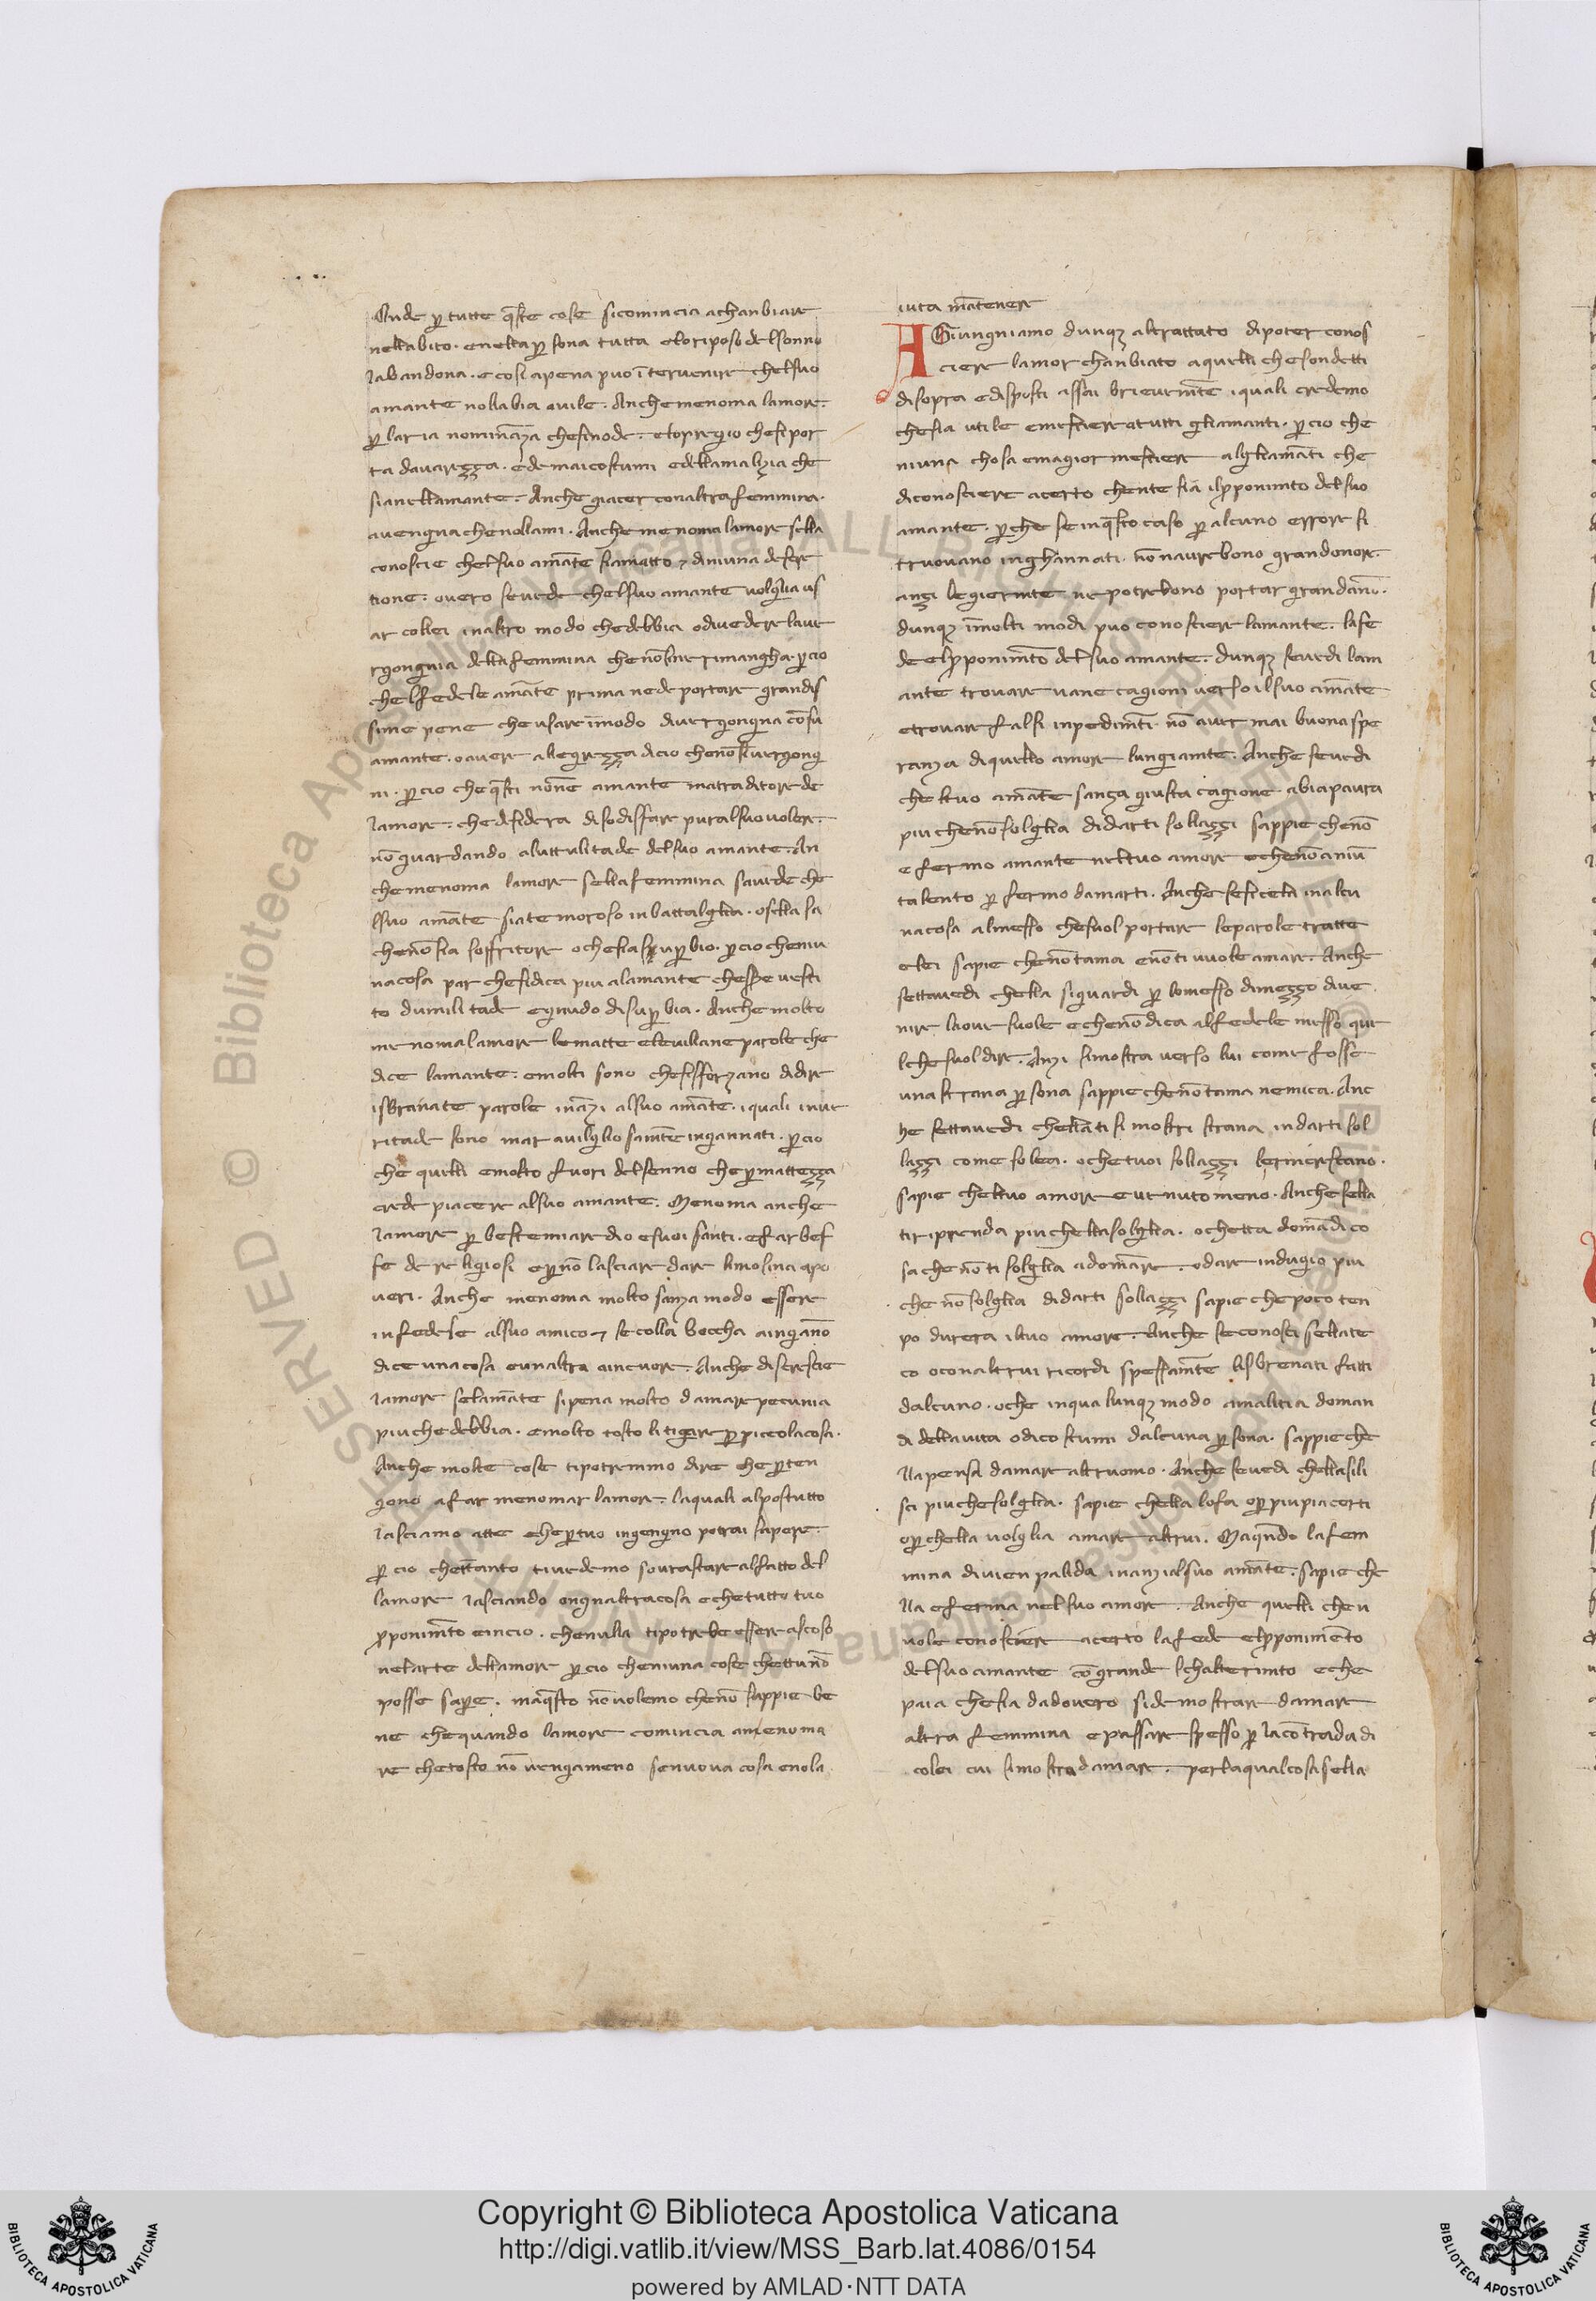 Onde ꝑ tutte q̄ste cose sicomincia achanbiare
nellabito. enella ꝑsona tutta eloriposo delsonno
labandona. ecosi apena puo ītervenire chelsuo
amante nollabia avile. Anche menoma lamore.
ꝑ laria nomināza chesinode. elopregio chesipor
ta davarezza. ede maicostumi edellamalizia che
sianellamante. Anche giacer conaltra femmina.
avengna chenollami. Anche menoma lamore sella
conoscie chelsuo amāte siamatto ⁊ diniuna discre
tione. overo sevede chelsuo amante volglia us
ar collei inaltro modo chedebbia odivedere lave
rgongnia dellafemmina chenō
chelfedele amāte prima nede portare grandis
sime pene che usare īmodo divergongna cō su
amante. oavere allegrezza dicio chenō
ni. ꝑcio che q̄sti nōne amante matraditore de
lamore. che desidera disodisfare puralsuovolere.
nō guardando alluttulitade delsuo amante. An
che menoma lamore sellafemmina savede che
lsuo amāte siatemoroso inbattalglia. osella sa
chenōsia soffritore ochesia suꝑbio. ꝑcio cheniu
nacosa par chesidica piu alamante chesse vesti
to dumilitade egnudo disuꝑbia. Anche molto
menomalamore lematte elevillane parole che
dice lamante. emolti sono chesisforzano didire
isvranate parole ināzi alsuo amāte. iquali inve
ritade sono maravilglosamēte ingannati. ꝑcio
che quelli emolto fuori delsenno che ꝑmattezza
crede piacere alsuo amante. Menoma anche
lamore ꝑ bestemiare dio esuoi santi. efarbef
fe de religiosi eꝑnō lasciare dare limosina apo
veri. Anche menoma molto sanza modo essere
infedele alsuo amico ⁊ se colla boccha aingāno
dice una cosa eunaltra aincuore. Anche discrescie
lamore selamāte sipena molto damare pecunia
piu chedebbia. emolto tosto litigare ꝑ piccolacosa.
Anche molte cose tipotremmo dire che ꝑten
gono afar menomar lamore. laquali alpostutto
lasciamo atte che ꝑtuo ingengno potrai sapere.
ꝑ cio chettanto tivedemo sourastare alfatto del
lamore lasciando ongnaltracosa echetutto tuo
ꝓponimēto eincio. chenulla tipotrebe essere ascoso
nelarte dellamore ꝑcio cheniuna cose chettunō
posse saꝑe. maq̄sto nō volemo chenō sappie be
ne che quando lamore comincia amenoma
re chetosto nō vengameno senuova cosa enola
iuta māteneree
AGiungniamo dunqꝫ altrattato dipoter conos
ciere lamor chanbiato aquelli chesondetti
disopra edisposti assai brievemēte iquali credemo
chesia utile emestiere atutti gliamanti. ꝑcio che
niuna chosa emagior mestiere algliamāti che
diconosciere acerto chente sia ilꝓponimēto delsuo
amante. ꝑche seinq̄sto caso ꝑ alcuno errore si
truovano inghannati. nō navrebono grandonor.
anzi legiermēte ne potrebono portar grandāno.
dunqꝫ īmolti modi puo conosciere lamante. lafe
de elꝓponimēto delsuo amante. dunqꝫ sevedi lam
ante trovare vane cagioni verso ilsuo amāte
etrovare falsi inpedimēti. nō aver mai buona spe
ranza diquello amore lungiamēte. Anche sevedi
cheltuo amāte sanza giusta cagione abia paura
piu chenō solglia didarti sollazzi sappie chenō
efermo amante neltuo amore
talento ꝑ fermo damarti. Anche seticela inalcu
nacosa almesso chesuol portare leparole tratte
elei sapie chenō tama enō ti vuole amare. Anche
settavedi chella siguardi ꝑ lomesso dimezzo dive
nire laove suole echenō dica alfedele messo que
lchesuol dire. Anzi simostra verso lui come fosse
una strana ꝑsona sappie chenō tama nemica. Anc
he settavedi chellati si mostri strana indarti sol
lazzi come solea. ochetuoi sollazzi lerincrescano.
sapie cheltuo amore evenuto meno. Anche sella
tiriprenda piu chellasolglia. ochetta domādi co
sa chenō ti solglia adomāre. odare indugio piu
che nō solglia didarti sollazzi sapie chepoco ten
po durera iltuo amore. Anche seconosci sellate
co oconaltrui ricordi spessamēte lisbrenati fatti
dalcuno. oche inqualunqꝫ modo amalitia doman
di dellavita odicostumi dalcuna ꝑsona. sappie che
llapensa damare altruomo. Anche sevedi chellasili
sci piu chesolglia. sapie chella lofa oꝑ piu piacerti
oꝑ chella volglia amare altrui. Maqn̄do lafem
mina divien palida inanzialsuo amāte. sapie che
lla eferma nelsuo amore. Anche quelli chev
uole conosciere acerto lafede elꝓponimēto
delsuo amante cō grande schalterimēto eche
paia chesia dadovero sidemostrar damare
altra femmina epassare spesso ꝑ lacōtrada di
colei cui simostra damare. perlaqualcosa sella
RESERVED © Biblioteca Apostolica Vaticana ALL RIGHTS
Copyright © Biblioteca Apostolica Vaticana
http://digi.vatlib.it/view/MSS_Barb.lat.4086/0154
powered by AMLAD·NTT DATA
BIBLIOTECA APOSTOLICA VATICANA
BIBLIOTECA APOSTOLICA VATICANA